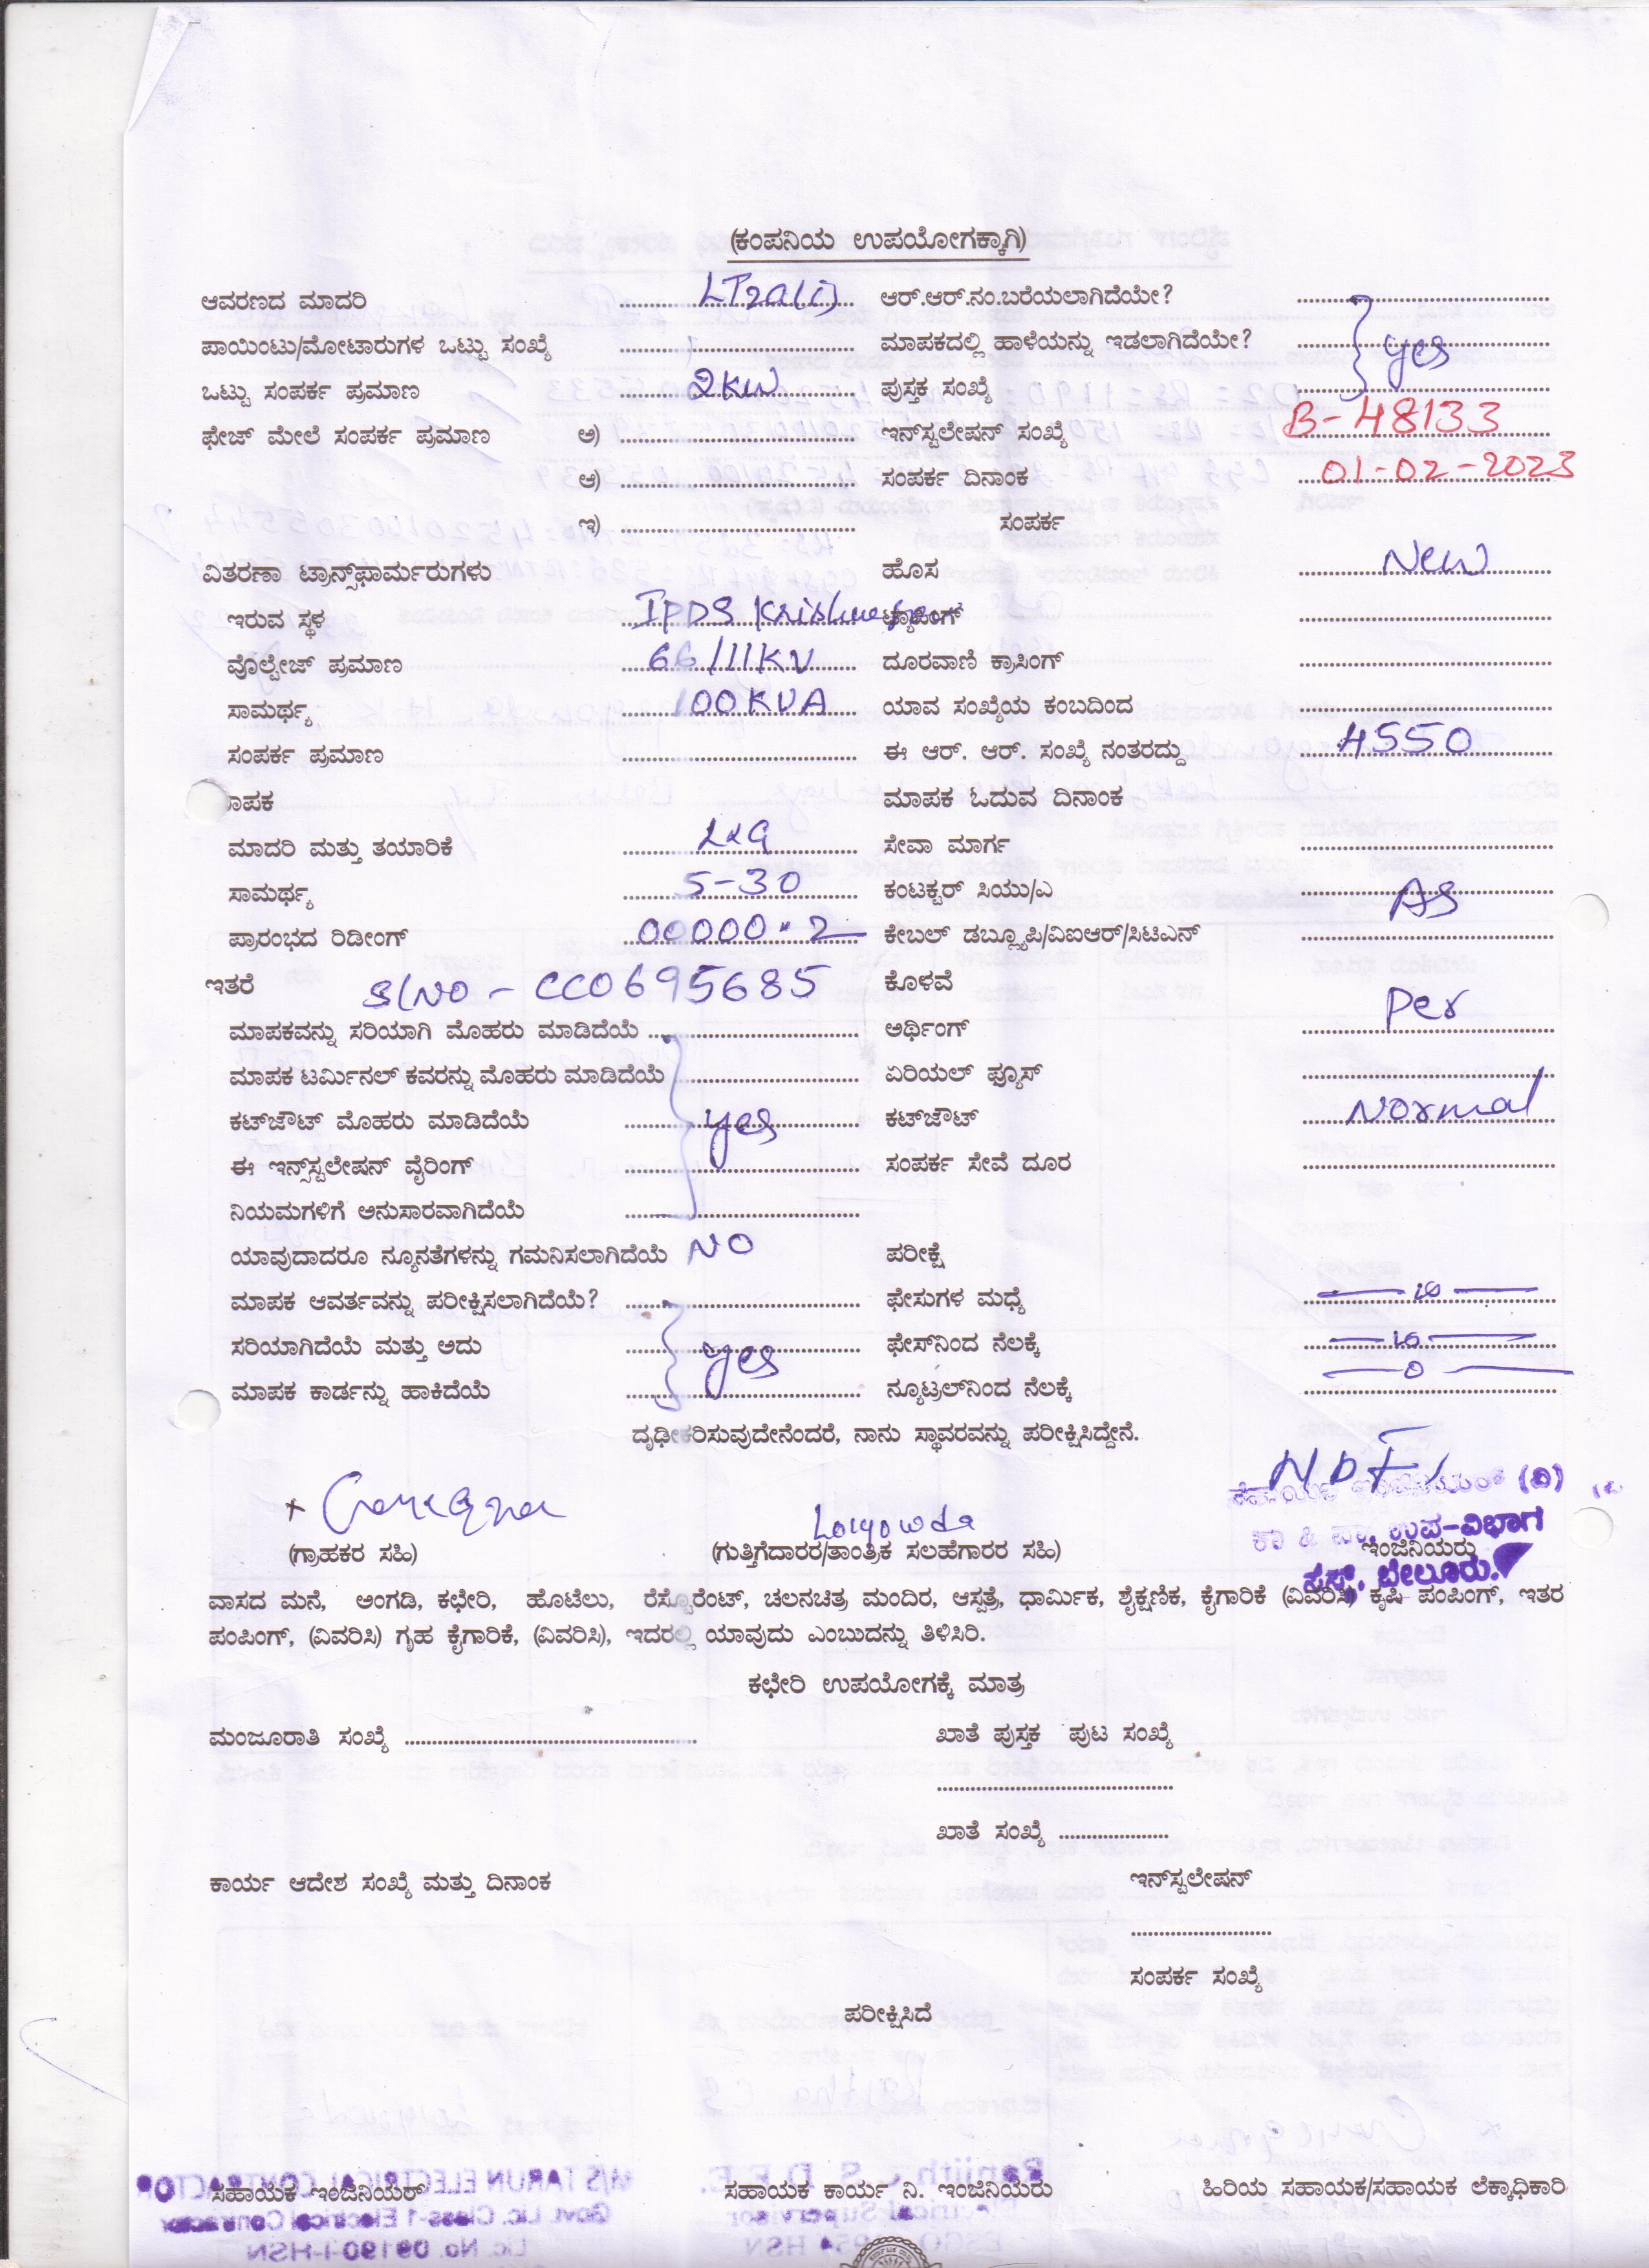 (ಕಂಪನಿಯ ಉಪಯೋಗಕ್ಕಾಗಿ)
ಆವರಣದ ಮಾದರಿ LT2a(i) ಆರ್.ಆರ್.ನಂ.ಬರೆಯಲಾಗಿದೆಯೇ?
ಪಾಯಿಂಟು/ಮೋಟಾರುಗಳ ಒಟ್ಟು ಸಂಖ್ಯೆ ಮಾಪಕದಲ್ಲಿ ಹಾಳೆಯನ್ನು ಇಡಲಾಗಿದೆಯೇ? yes
ಒಟ್ಟು ಸಂಪರ್ಕ ಪ್ರಮಾಣ 2KW ಪುಸ್ತಕ ಸಂಖ್ಯೆ
ಫೇಜ್ ಮೇಲೆ ಸಂಪರ್ಕ ಪ್ರಮಾಣ ಅ) ಇನ್‌ಸ್ಟಲೇಷನ್ ಸಂಖ್ಯೆ B-48133
ಆ) ಸಂಪರ್ಕ ದಿನಾಂಕ 01-02-2023
ಇ) ಸಂಪರ್ಕ
ವಿತರಣಾ ಟ್ರಾನ್ಸ್‌ಫಾರ್ಮರುಗಳು ಹೊಸ New
ಇರುವ ಸ್ಥಳ ಟ್ಯಾಪಿಂಗ್
ವೊಲ್ಟೇಜ್ ಪ್ರಮಾಣ 66/11KV ದೂರವಾಣಿ ಕ್ರಾಸಿಂಗ್
ಸಾಮರ್ಥ್ಯ 100KVA ಯಾವ ಸಂಖ್ಯೆಯ ಕಂಬದಿಂದ
ಸಂಪರ್ಕ ಪ್ರಮಾಣ ಈ ಆರ್. ಆರ್. ಸಂಖ್ಯೆ ನಂತರದ್ದು 4550
ಾಪಕ ಮಾಪಕ ಓದುವ ದಿನಾಂಕ
ಮಾದರಿ ಮತ್ತು ತಯಾರಿಕೆ L&G ಸೇವಾ ಮಾರ್ಗ
ಸಾಮರ್ಥ್ಯ 5-30 ಕಂಟಕ್ಟರ್ ಸಿಯು/ಎ As
ಪ್ರಾರಂಭದ ರಿಡೀಂಗ್ 00000.2 ಕೇಬಲ್ ಡಬ್ಲ್ಯೂಪಿ/ವಿಐಆರ್/ಸಿಟಿಎನ್
ಇತರೆ S/NO - CC0695685 ಕೊಳವೆ Per
ಮಾಪಕವನ್ನು ಸರಿಯಾಗಿ ಮೊಹರು ಮಾಡಿದೆಯೆ ಅರ್ಥಿಂಗ್
ಮಾಪಕ ಟರ್ಮಿನಲ್ ಕವರನ್ನು ಮೊಹರು ಮಾಡಿದೆಯೆ ಏರಿಯಲ್ ಫ್ಯೂಸ್
ಕಟ್‌ಜೌಟ್ ಮೊಹರು ಮಾಡಿದೆಯೆ yes ಕಟ್‌ಜೌಟ್ Normal
ಈ ಇನ್ಸ್‌ಸ್ಟಲೇಷನ್ ವೈರಿಂಗ್ ಸಂಪರ್ಕ ಸೇವೆ ದೂರ
ನಿಯಮಗಳಿಗೆ ಅನುಸಾರವಾಗಿದೆಯೆ
ಯಾವುದಾದರೂ ನ್ಯೂನತೆಗಳನ್ನು ಗಮನಿಸಲಾಗಿದೆಯೆ NO ಪರೀಕ್ಷೆ
ಮಾಪಕ ಆವರ್ತವನ್ನು ಪರೀಕ್ಷಿಸಲಾಗಿದೆಯೆ? ಫೇಸುಗಳ ಮಧ್ಯೆ
ಸರಿಯಾಗಿದೆಯೆ ಮತ್ತು ಅದು yes ಫೇಸ್‌ನಿಂದ ನೆಲಕ್ಕೆ
ಮಾಪಕ ಕಾರ್ಡನ್ನು ಹಾಕಿದೆಯೆ ನ್ಯೂಟ್ರಲ್‌ನಿಂದ ನೆಲಕ್ಕೆ 0
ದೃಢೀಕರಿಸುವುದೇನೆಂದರೆ, ನಾನು ಸ್ಥಾವರವನ್ನು ಪರೀಕ್ಷಿಸಿದ್ದೇನೆ.
(ವಿ)
ಉಪ-ವಿಭಾಗ
(ಗ್ರಾಹಕರ ಸಹಿ) (ಗುತ್ತಿಗೆದಾರರ/ತಾಂತ್ರಿಕ ಸಲಹೆಗಾರರ ಸಹಿ) ಇಂಜಿನಿಯರು
ಬೇಲೂರು.
ವಾಸದ ಮನೆ, ಅಂಗಡಿ, ಕಛೇರಿ, ಹೊಟೆಲು, ರೆಸ್ಟೊರೆಂಟ್, ಚಲನಚಿತ್ರ ಮಂದಿರ, ಆಸ್ಪತ್ರೆ, ಧಾರ್ಮಿಕ, ಶೈಕ್ಷಣಿಕ, ಕೈಗಾರಿಕೆ (ವಿವರಿಸಿ) ಕೃಷಿ ಪಂಪಿಂಗ್, ಇತರ
ಪಂಪಿಂಗ್, (ವಿವರಿಸಿ) ಗೃಹ ಕೈಗಾರಿಕೆ, (ವಿವರಿಸಿ), ಇದರಲ್ಲಿ ಯಾವುದು ಎಂಬುದನ್ನು ತಿಳಿಸಿರಿ.
ಕಛೇರಿ ಉಪಯೋಗಕ್ಕೆ ಮಾತ್ರ
ಮಂಜೂರಾತಿ ಸಂಖ್ಯೆ ಖಾತೆ ಪುಸ್ತಕ ಪುಟ ಸಂಖ್ಯೆ
ಖಾತೆ ಸಂಖ್ಯೆ
ಕಾರ್ಯ ಆದೇಶ ಸಂಖ್ಯೆ ಮತ್ತು ದಿನಾಂಕ ಇನ್‌ಸ್ಟಲೇಷನ್
ಸಂಪರ್ಕ ಸಂಖ್ಯೆ
ಪರೀಕ್ಷಿಸಿದೆ
ಸಹಾಯಕ ಇಂಜಿನಿಯರ್ ಸಹಾಯಕ ಕಾರ್ಯ ನಿ. ಇಂಜಿನಿಯರು ಹಿರಿಯ ಸಹಾಯಕ/ಸಹಾಯಕ ಲೆಕ್ಕಾಧಿಕಾರಿ